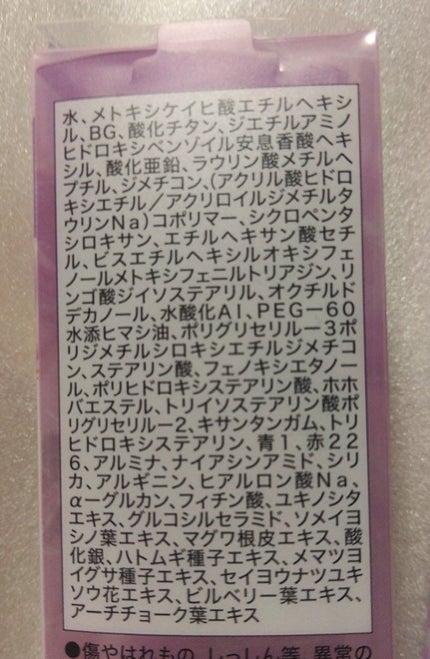 水、メトキシケイヒ酸エチルヘキシ
ル、BG、酸化チタン、ジエチルアミノ
ヒドロキシベンゾイル安息香酸ヘキ
シル、酸化亜鉛、ラウリン酸メチルヘ
プチル、ジメチコン、(アクリル酸ヒドロ
キシエチル/アクリロイルジメチルタ
ウリンNa)コポリマー、シクロペンタ
シロキサン、エチルヘキサン酸セチ
ル、ビスエチルヘキシルオキシフェ
ノールメトキシフェニルトリアジン、リ
ンゴ酸ジイソステアリル、オクチルド
デカノール、水酸化Al、PEG-60
水添ヒマシ油、ポリグリセリル-3ポ
リジメチルシロキシエチルジメチコ
ン、ステアリン酸、フェノキシエタノー
ル、ポリヒドロキシステアリン酸、ホホ
バエステル、トリイソステアリン酸ポ
リグリセリル-2、キサンタンガム、トリ
ヒドロキシステアリン、青1、赤22
6、アルミナ、ナイアシンアミド、シリ
カ、アルギニン、ヒアルロン酸Na、
α-グルカン、フィチン酸、ユキノシタ
エキス、グルコシルセラミド、ソメイヨ
シノ葉エキス、マグワ根皮エキス、酸
化銀、ハトムギ種子エキス、メマツヨ
イグサ種子エキス、セイヨウナツユキ
ソウ花エキス、ビルベリー葉エキス、
アーチチョーク葉エキス
●傷やはれもの、しっしん等、異常の